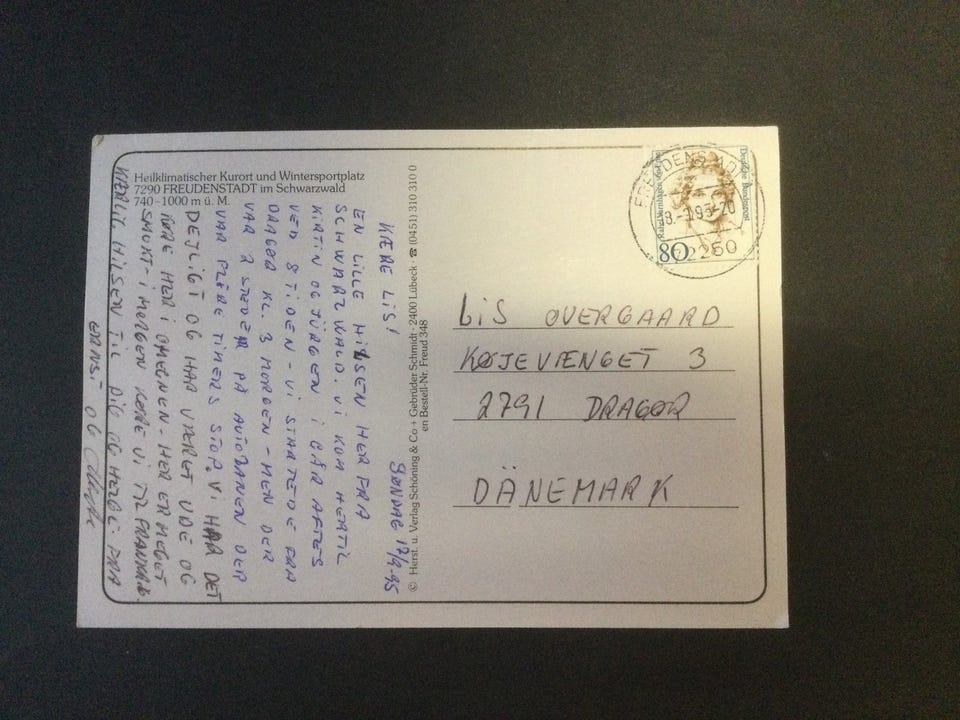 Heilklimatischer Kurort und Wintersportplatz
7290 FREUDENSTADT im Schwarzwald
740–1000 m ü. M.
SØNDAG 17/9-95
KÆRE LIS!
EN LILLE HILSEN HER FRA
SCHWARZWALD. VI KOM HERTIL
KIRTIN OG JÜRGEN I GÅR AFTES
VED 8 TIDEN - VI STARTEDE FRA
DRAGØR KL. 3 MORGEN - MEN DER
VAR 2 STEDER PÅ AUTOBANEN DER
VAR FLERE TIMERS STOP. VI HAR DET
DEJLIGT OG HAR VÆRET UDE OG
KØRE HER I OMEGNEN - HER ER MEGET
SMUKT - I MORGEN KØRE VI TIL FRANKRIG.
KÆRLIG HILSEN TIL DIG OG HERDIS FRA
ERNST OG
© Herst. u. Verlag Schöning & Co + Gebrüder Schmidt · 2400 Lübeck · ☎ (0451) 310 310 0
en Bestell-Nr. Freud 348
Deutsche Bundespost
80
FREUDENSTADT
18.-9.95-20
72250
LIS OVERGAARD
KØJEVÆNGET 3
2791 DRAGØR
DÄNEMARK